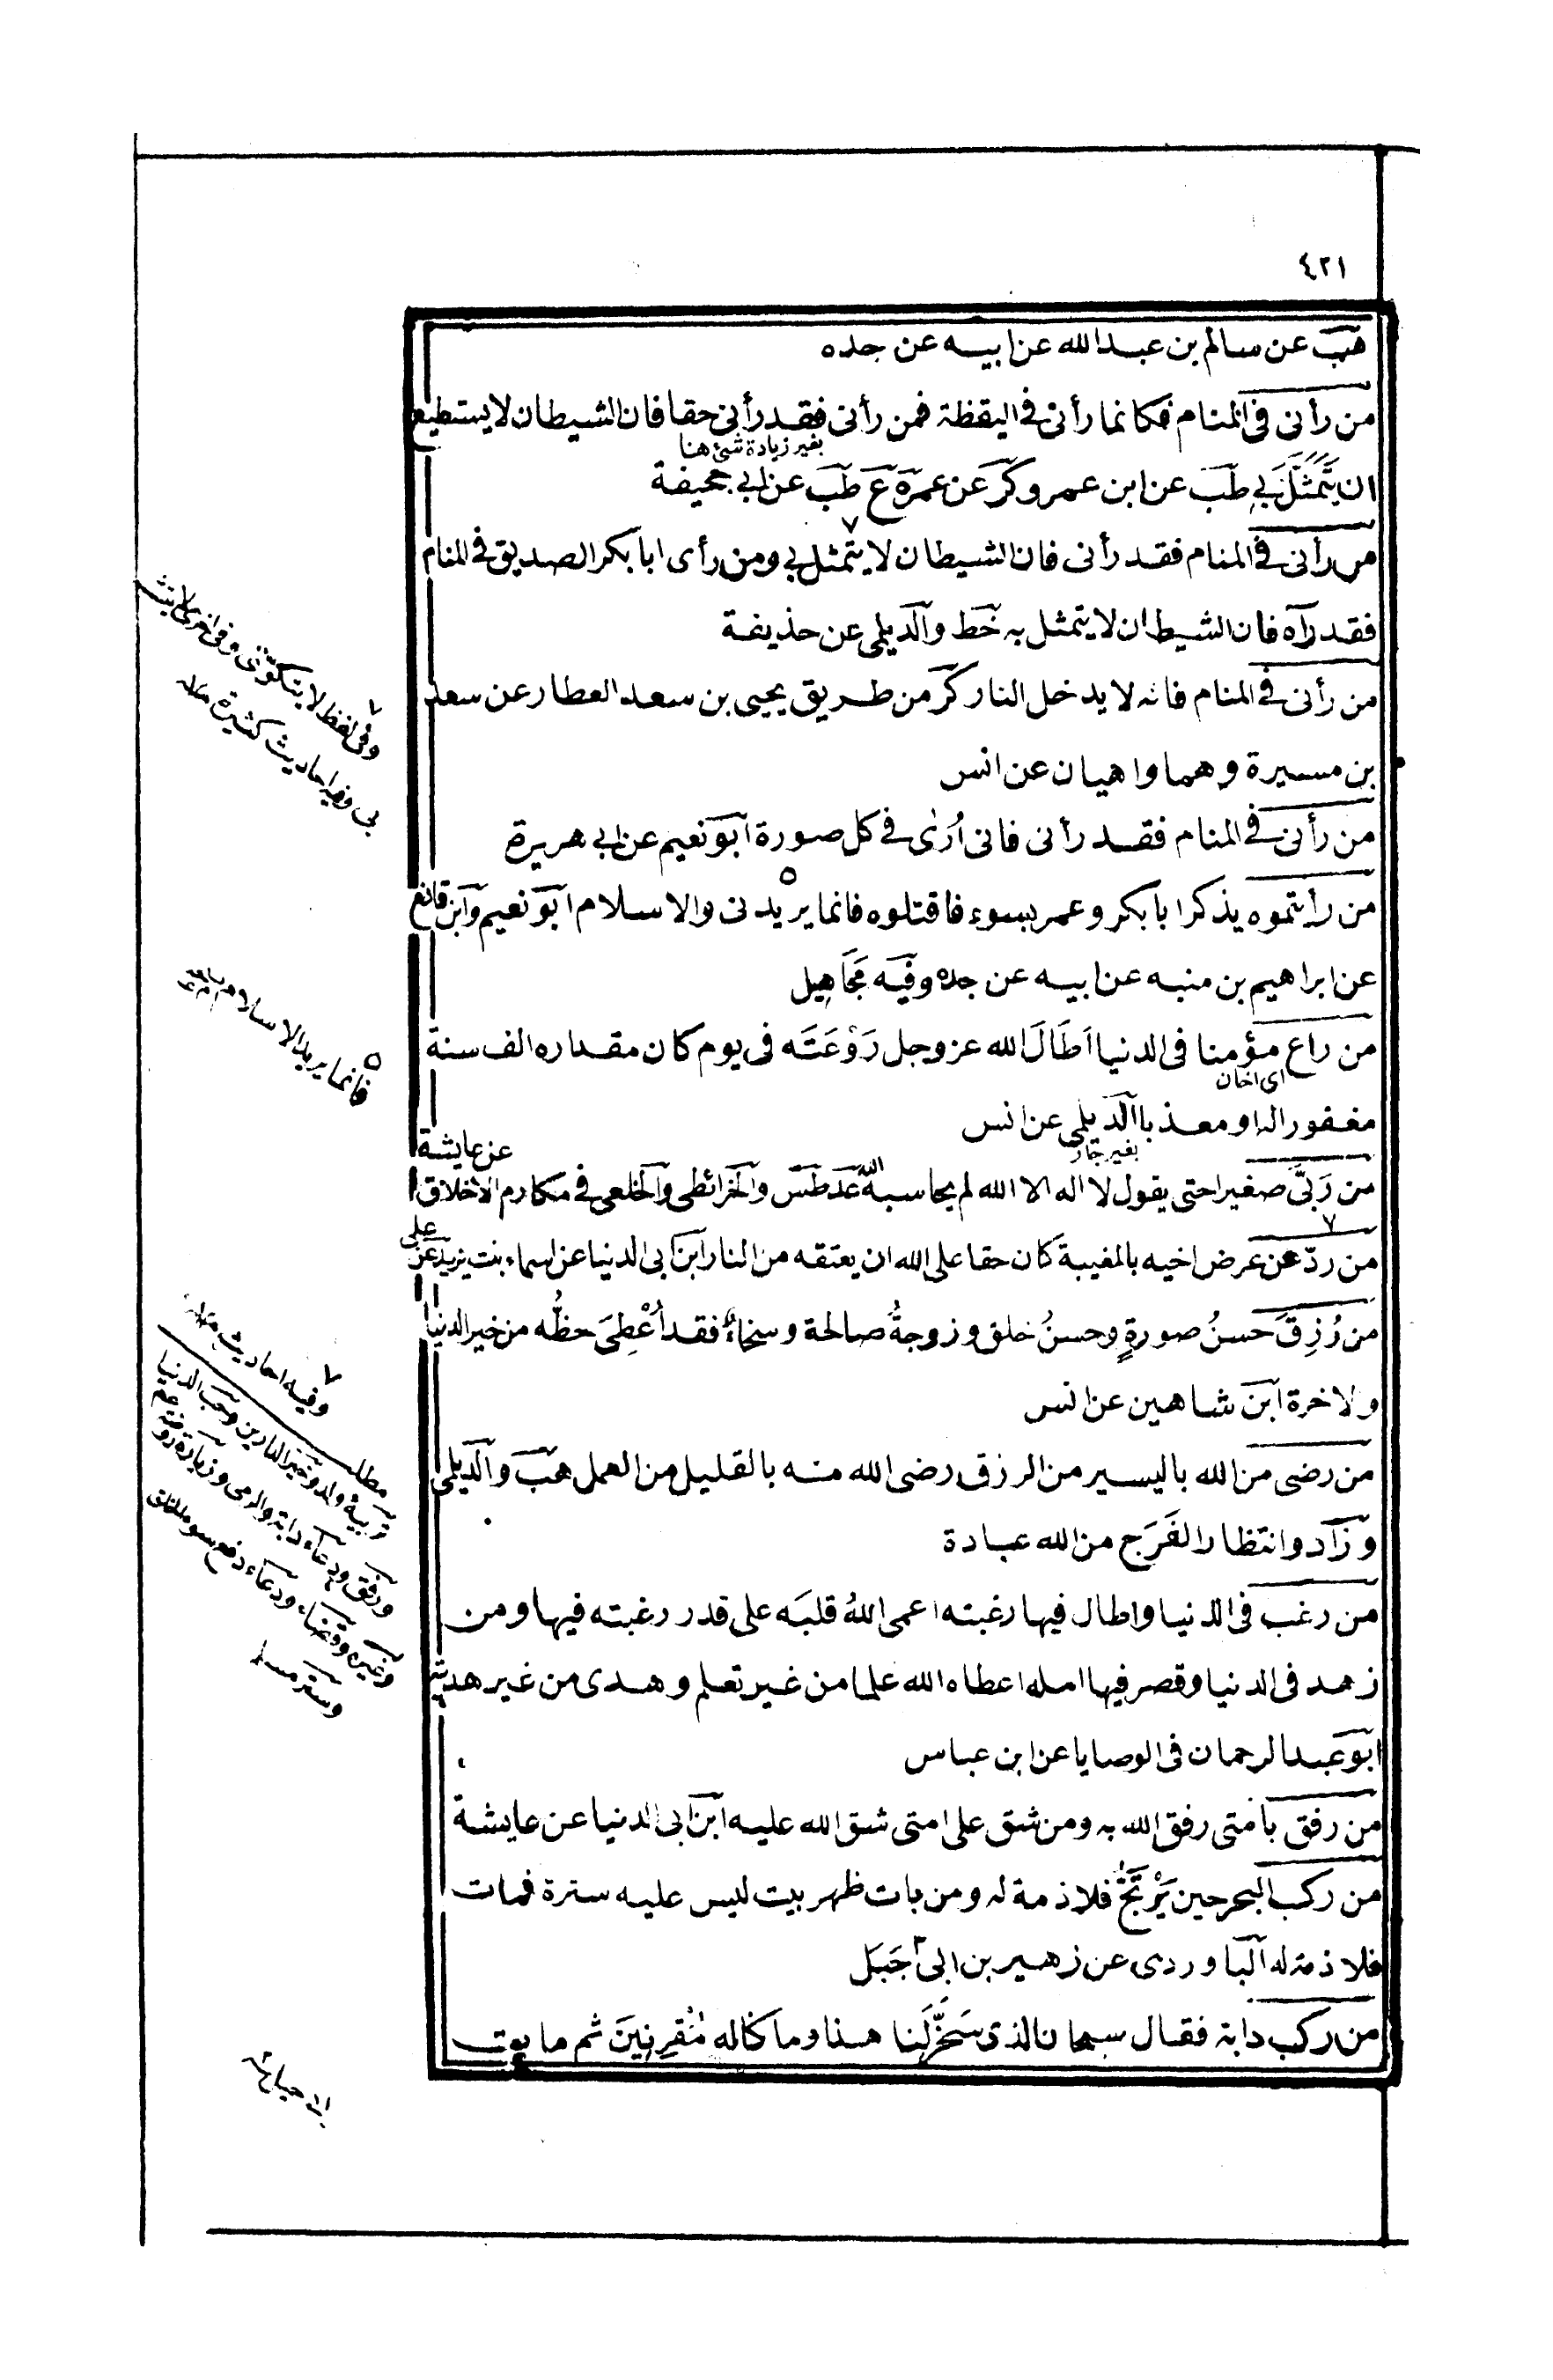 ٤٢١
هب عن سالم بن عبدالله عن ابيه عن جده
من رأنى فى المنام فكانما رأنى فى اليقظة فمن رأنى فقد رأنى حقا فان الشيطان لا يستطيع
بغير زيادة شئ هنا
ان يَتَمَثَّلَ بى طب عن ابن عمرو كر عن عمرة ع طب عن ابى جحيفة
٧
من رأنى فى المنام فقد رأنى فان الشيطان لا يتمثل بى ومن رأى ابا بكر الصديق فى المنام
فقد رآه فان الشيطان لا يتمثل به خط والديلمى عن حذيفة
من رأنى فى المنام فانه لا يدخل النار كر من طريق يحيى بن سعد العطار عن سعد
بن مسيرة وهما واهيان عن انس
من رأنى فى المنام فقد رأنى فانى اُرىٰ فى كل صورة ابو نعيم عن ابى هريرة
٥
من رأيتموه يذكر ابا بكر وعمر بسوء فاقتلوه فانما يريدنى والاسلام ابو نعيم وابن قانع
عن ابراهيم بن منبه عن ابيه عن جده وفيه مَجَاهِيل
من راع مؤمنا فى الدنيا اَطَالَ الله عز وجل رَوْعَتَه فى يوم كان مقداره الف سنة
اى اخان
مغفورا له او معذبا الديلمى عن انس
بغير جار
عن عايشة
من رَبَّى صغيرا حتى يقول لا اله الا الله لم يحاسبه الله عد طس والخرائطى والخلعى فى مكارم الاخلاق
٧
من ردّ عن عرض اخيه بالمغيبة كان حقا على الله ان يعتقه من النار ابن ابى الدنيا عن اسماء بنت يزيد عن على
من رُزِقَ حسنُ صورةٍ وحسنُ خلق وزوجةُ صالحة وسخاءٌ فقد اُعْطِىَ حظُّه من خير الدنيا
والاخرة ابن شاهين عن انس
من رضى من الله باليسير من الرزق رضى الله منه بالقليل من العمل هب والديلمى
وزاد وانتظار الفَرَج من الله عبادة
من رغب فى الدنيا واطال فيها رغبته اعمى اللهُ قلبَه على قدر رغبته فيها ومن
زهد فى الدنيا وقصر فيها امله اعطاه الله علما من غير تعلم وهدى من غير هدية
ابو عبدالرحمان فى الوصايا عن ابن عباس
من رفق بامتى رفق الله به ومن شق على امتى شق الله عليه ابن ابى الدنيا عن عايشة
من ركب البحر حين يَرْتَجُّ فلا ذمة له ومن بات ظهر بيت ليس عليه سترة فمات
فلا ذمة له الباوردى عن زهير بن ابى جَبَل
من ركب دابة فقال سبحان الذى سَخَّرَ لَنا هذا وما كنا له مُقْرِنِينَ ثم مات
٧
وفى لفظ لا يتكوننى وفى اخرى لا يتشبه
بى وفيه احاديث كثيرة
٥
فانما يريد الاسلام
٧
وفيه احاديث
مطلب
تربية ولد وخير الدارين وحب الدنيا
ورفق ودعاء دابة والرمى وزيارة روضة عم
وغيره وقضاء ودعاء دفع سوء الخلق
وستر مسلم